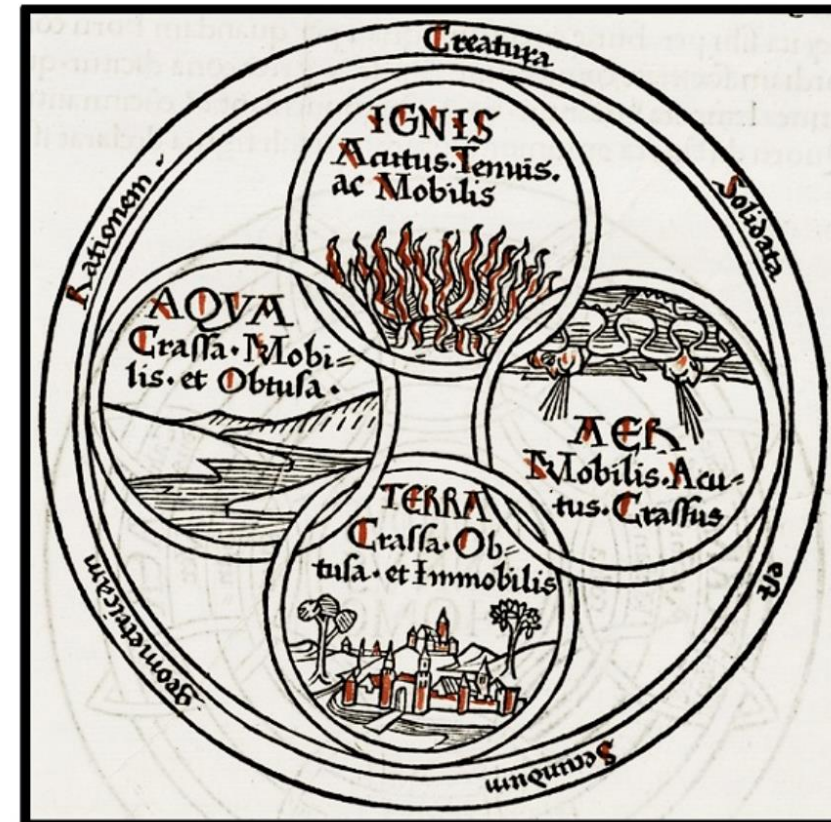 Creatura
Solidata
eſt
Secundum
geometricam
Rationem
IGNIS
Acutus·Tenuis·
ac Mobilis
AQVA
Craſſa·Mobi=
lis·et Obtuſa·
AER
Mobilis·Acu=
tus·Craſſus
TERRA
Craſſa·Ob=
tuſa·et Immobilis